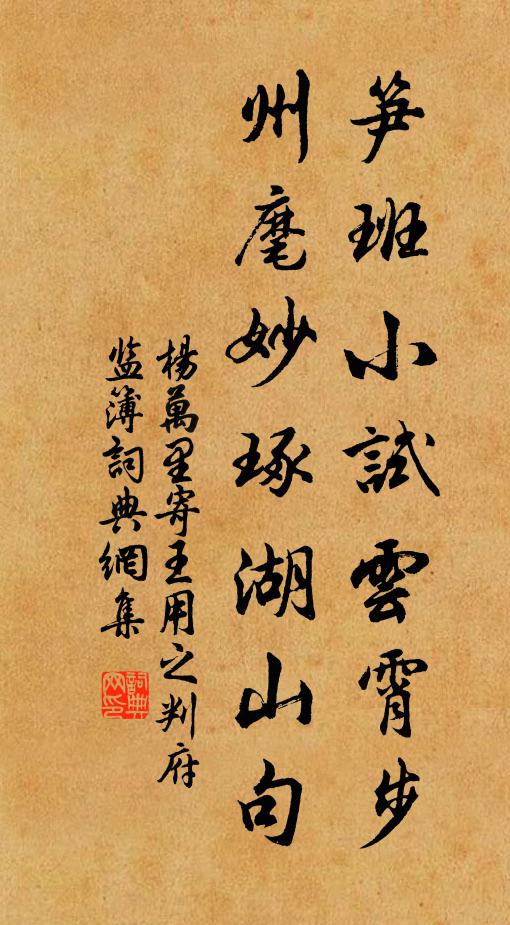 笋班小試雲霄步
州麾妙琢湖山句
楊萬里寄王用之判府
监簿詞典網集
詞典网印